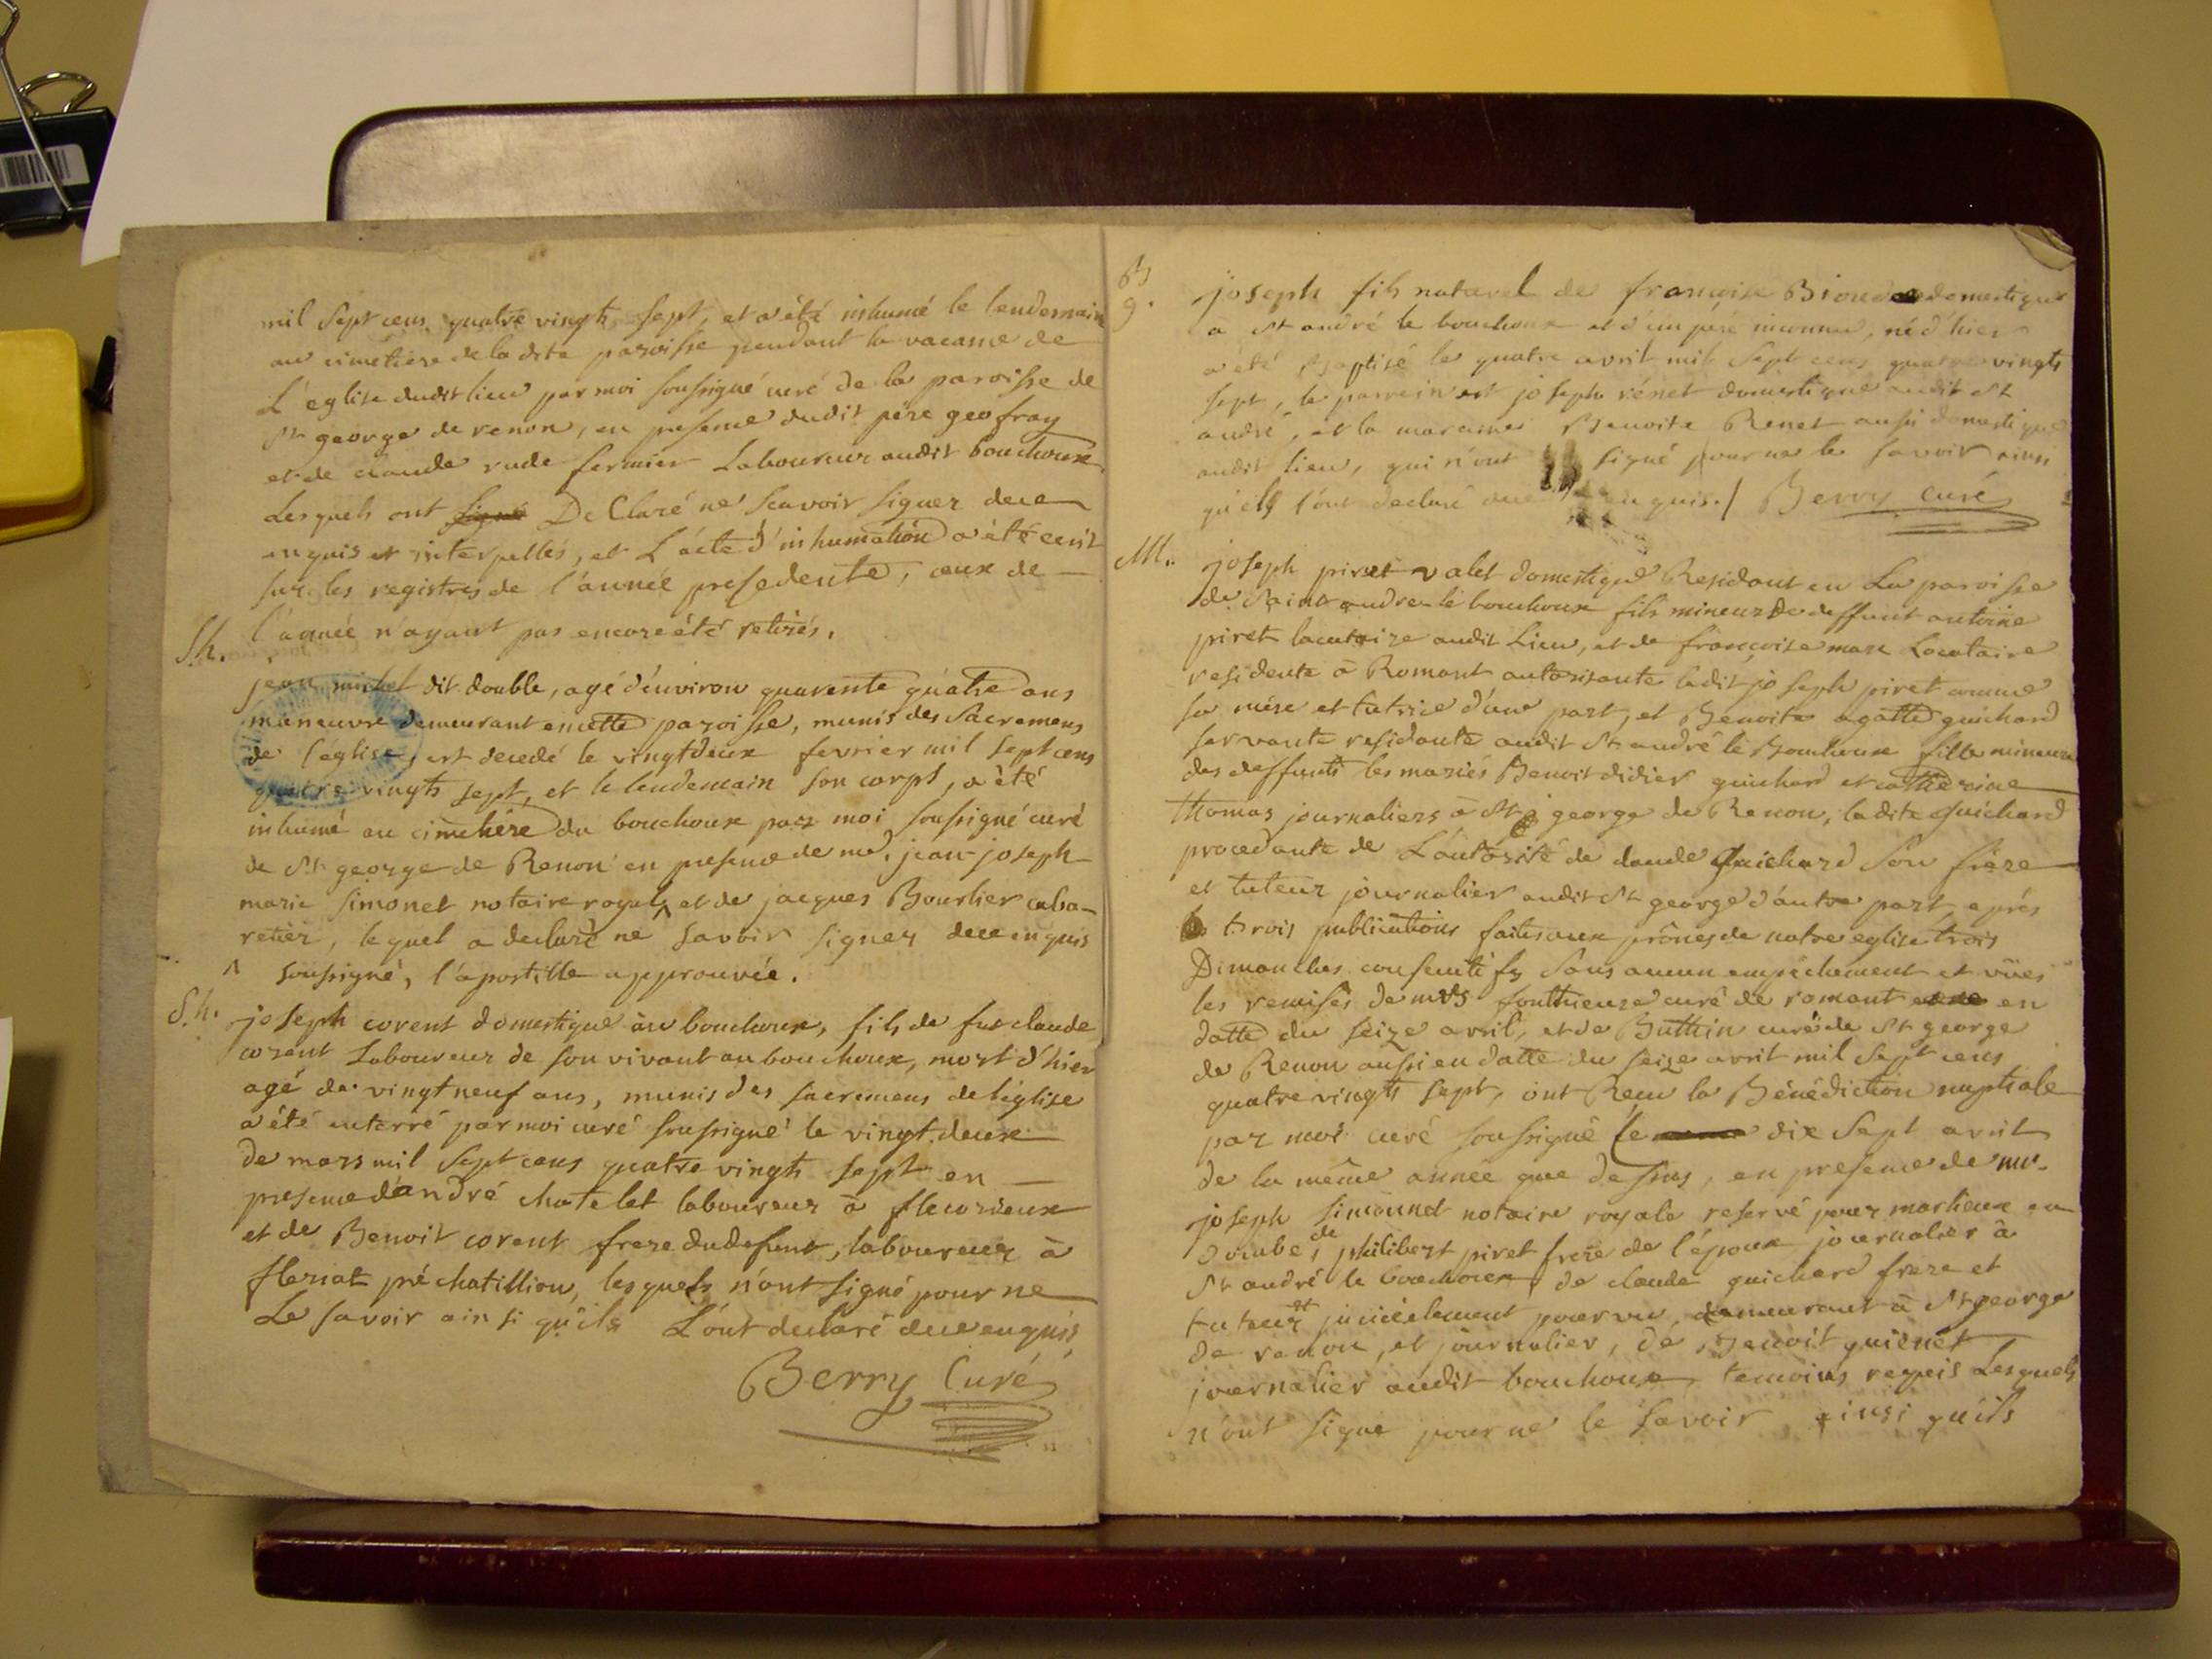 mil sept cens quatre vingts sept, et a été inhumé le lendemain
au cimetiere de la dite paroisse pendant la vacance de
L'eglise dudit lieu par moi soussigné curé de la paroisse de
St george de renon, en presence dudit pere geofray
et de claude rude fermier Laboureur audit bouchoux
Lesquels ont signé DeClaré ne scavoir signer de ce
enquis et interpellés, et L'acte d'inhumation a été ecrit
sur les registres de l'année presedente, ceux de
l'année n'ayant pas encore été retirés.
S.h.
jean michel dit double, agé d'environ quarente quatre ans
maneuvre demeurant en cette paroisse, munis des Sacremens
de l'eglise, est decedé le vingt deux fevrier mil sept cens
quatre vingts sept, et le lendemain son corps, a été
inhumé au cimetière du bouchoux par moi soussigné curé
de St george de Renon en presence de me. jean joseph
marie simonet notaire royal ^ et de jacques Bourlier caba-
retier, lequel a declaré ne savoir signer de ce enquis
^ soussigné, l'apostille approuvée.
S.h.
joseph corent domestique au bouchoux, fils de fut claude
corent Laboureur de son vivant au bouchoux, mort d'hier
agé de vingt neuf ans, munis des sacremens de l'église
a été enterré par moi curé soussigné le vingt deux
de mars mil sept cens quatre vingts sept en
presence d'andré chatelet laboureur à fleurieux
et de Benoit corent frere du defunt, laboureur à
fleriat pré chatillion, lesquels n'ont signé pour ne
Le savoir ainsi qu'ils L'ont declaré de ce enquis,
Berry Curé
B
9.
joseph fils naturel de françoise domestique
à St andré le bouchoux et d'un pere inconnu, né d'hier
a été Baptisé le quatre avril mil sept cens quatre vingts
sept, le parrein est joseph rénet domestique audit St
andré, et la maraine Benoite Renet aussi domestique
audit lieu, qui n'ont signé pour ne le savoir ainsi
qu'ils l'ont declaré de ce enquis./ Berry curé
M.
joseph piret valet domestique Residant en La paroisse
de Saint andre le bouchoux fils mineur de deffunt antoine
piret locataire audit Lieu, et de françoise mare Locataire
residente à Romant autorisante ledit joseph piret comme
sa mére et tutrice d'une part, et Benoite agatte guichard
servante residante audit St andré le Bouchoux fille mineure
des deffunts les mariés Benoit didier guichard et catherine
thomas journaliers à St george de Renon, la dite guichard
procedante de L'autorité de claude Guichard son frere
et tuteur journalier audit St george d'autre part, aprés
trois publications faites aux prônes de notre eglise trois
Dimanches consecutifs sans aucun empêchement et vües
les remises de mrs fonthieure curé de romant en
datte du seize avril, et de Buthin curé de St george
de Renon aussi en datte du seize avril mil sept cens
quatre vingts sept, ont Recu la Bénédiction nuptiale
par moi curé soussigné le dix sept avril
de la même année que dessus, en presence de me.
joseph simonnet notaire royale reservé pour marlieux en
dombe, de philibert piret frere de l'époux journalier à
St andré le bouchoux, de claude guichard frere et
tuteur juricielement pourvu, demeurant à St george
de renon, et journalier, de Benoit guienet
journalier audit bouchoux temoins requis Lesquels
n'ont signé pour ne le savoir ainsi qu'ils